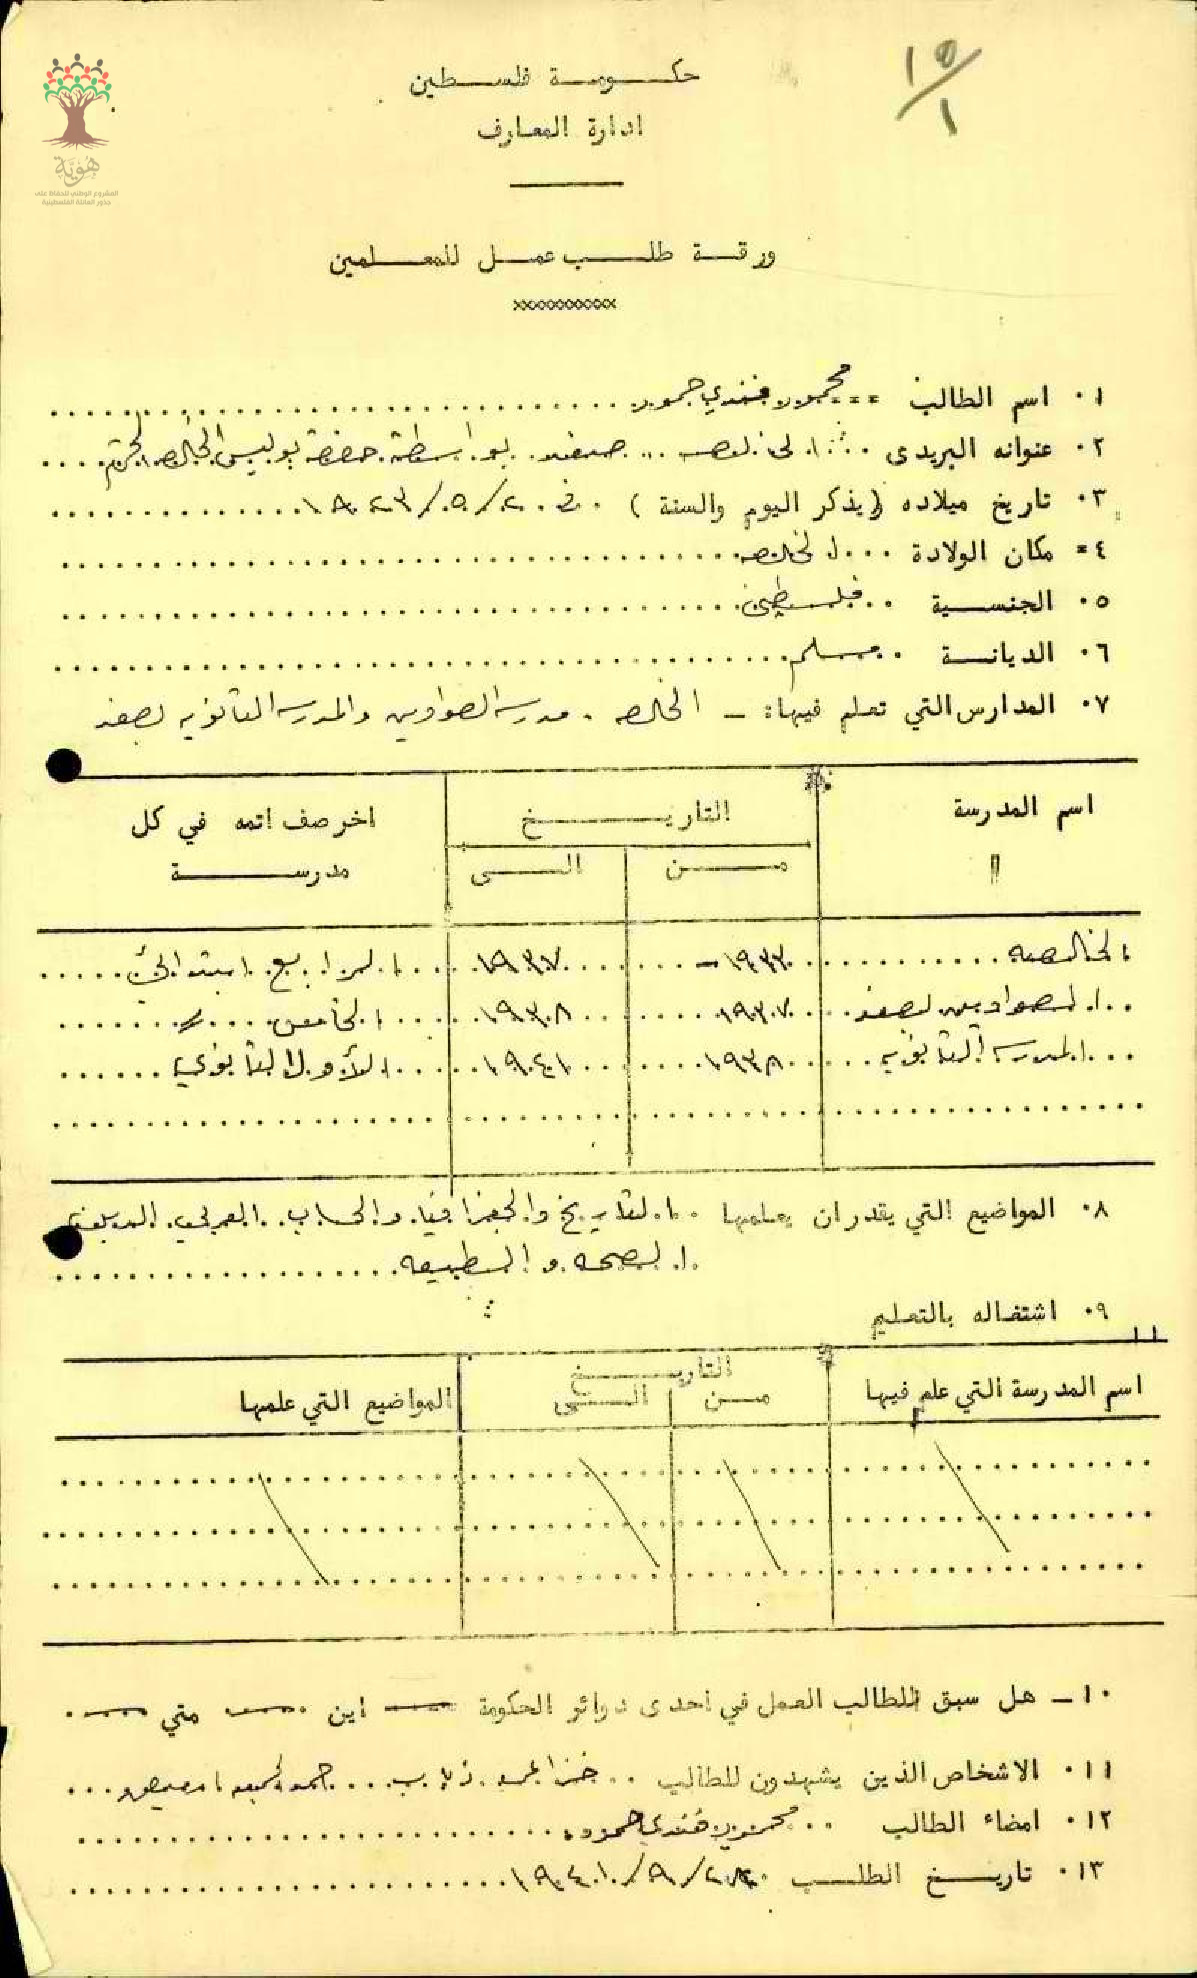 ١٥/١
هُوِيَّة
المشروع الوطني للحفاظ على
جذور العائلة الفلسطينية
حكومة فلسطين
ادارة المعارف
ورقة طلب عمل للمعلمين
xxxxxxxxxxxx
١٠ اسم الطالب محمود فندي حمود
٢٠ عنوانه البريدى الخالصه صفد بواسطة حضرة بوليس الخالصه المحترم
٣٠ تاريخ ميلاده (يذكر اليوم والسنة) في ٢٠/٥/١٩٢٣
٤= مكان الولادة الخالصه
٥٠ الجنسية فلسطين
٦٠ الديانة مسلم
٧٠ المدارس التي تعلم فيها: - الخالصه . مدرسه الصواوين والمدرسه الثانويه بصفد
اسم المدرسة التاريخ اخر صف اتمه في كل
من الى مدرسة
الخالصه ١٩٣٢ - ١٩٣٧ الرابع ابتدائي
الصواوين بصفد ١٩٣٧ ١٩٣٨ الخامس "
المدرسه الثانويه ١٩٣٨ ١٩٤١ الأول الثانوي
٨٠ المواضيع التي يقدران يعلمها التاريخ والجغرافيا والحساب العربي
الصحه و الطبيعه
٩٠ اشتغاله بالتعليم
اسم المدرسة التي علم فيها التاريخ المواضيع التي علمها
من الى
١٠ـ هل سبق للطالب العمل في احدى دوائر الحكومة — اين — متي —
١١٠ الاشخاص الذين يشهدون للطالب ذياب
١٢٠ امضاء الطالب محمود فندي حمود
١٣٠ تاريخ الطلب /٩/١٩٤١